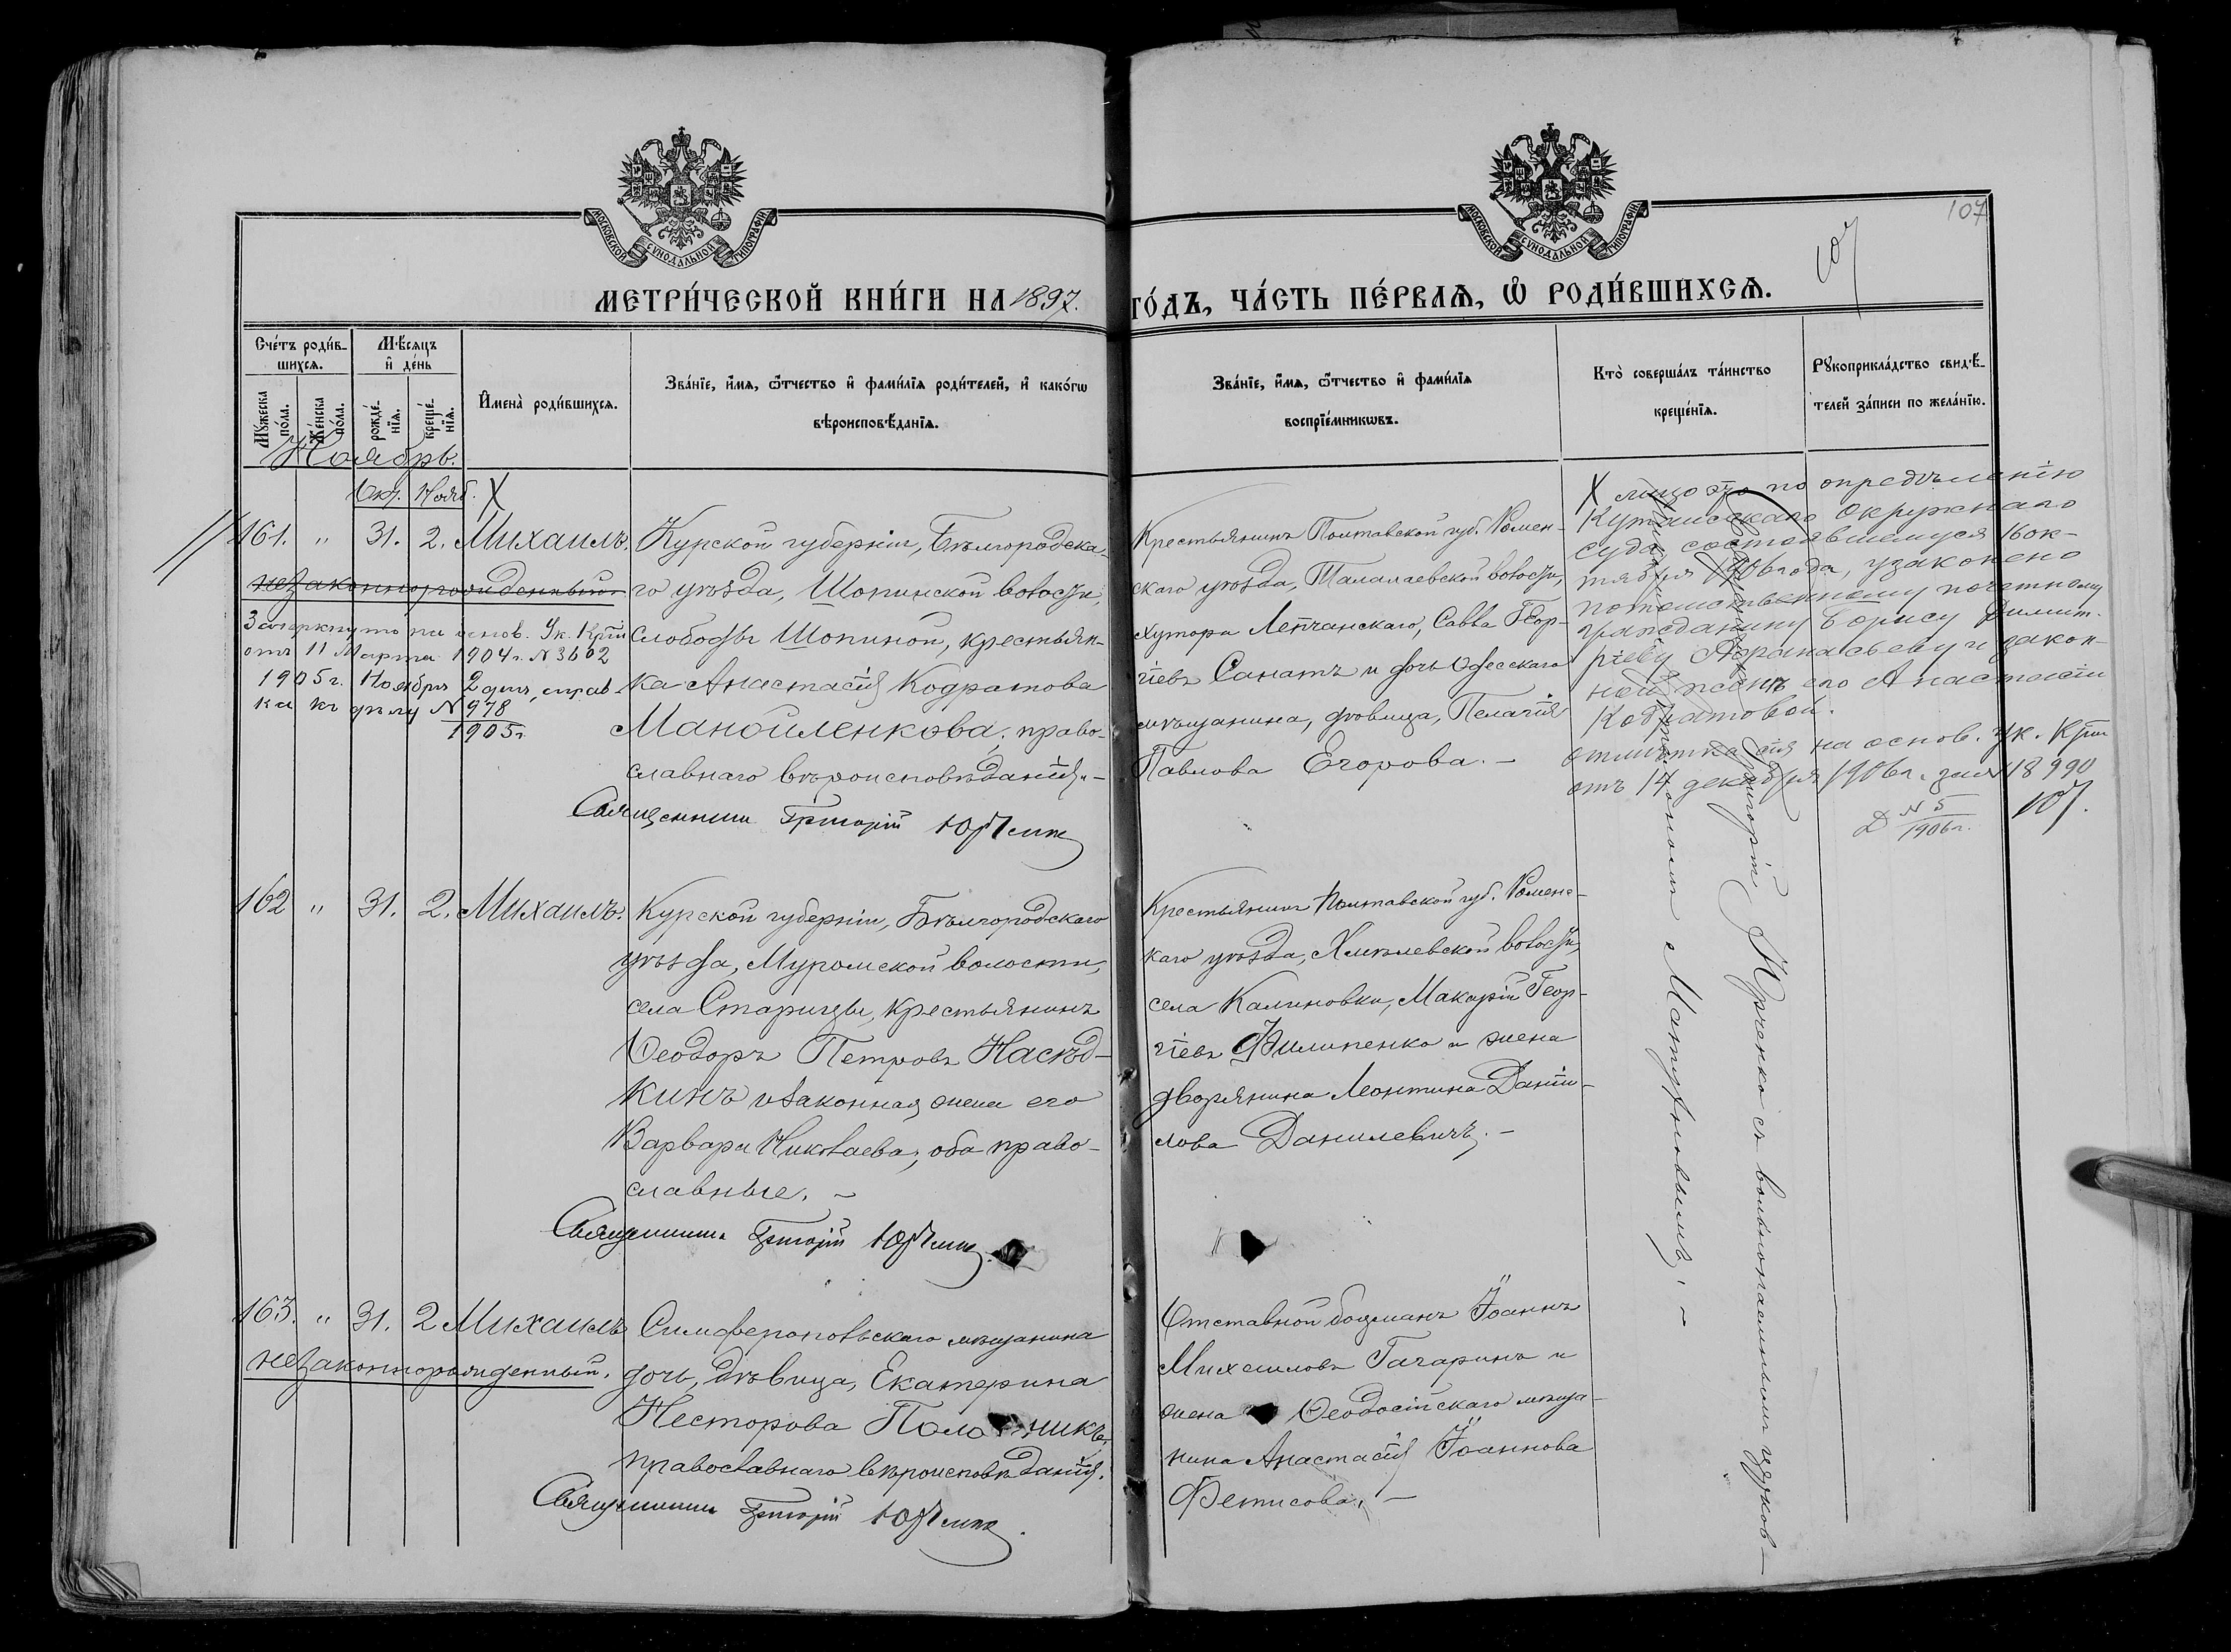 107
107
МОСКОВСКОЙ СѴНОДАЛЬНОЙ ТИПОГРАФІИ
МОСКОВСКОЙ СѴНОДАЛЬНОЙ ТИПОГРАФІИ
МЕТРИ́ЧЕСКОЙ КНИ́ГИ НА 1897.
ГО́ДЪ, ЧА́СТЬ ПЕ́РВАѦ, Ѡ҆ РОДИ́ВШИХСѦ.
Сче́тъ роди́в-
шихсѧ.
Мꙋ́жеска
по́ла.
Же́нска
по́ла.
Мѣ́сѧцъ
и҆ де́нь
рожде́-
нїѧ.
креще́-
нїѧ.
И҆мена̀ роди́вшихсѧ.
Зва́нїе, и҆́мѧ, ѻ҆́тчество и҆ фами́лїѧ роди́телей, и҆ како́гѡ
вѣроисповѣ́данїѧ.
Зва́нїе, и҆́мѧ, ѻ҆́тчество и҆ фами́лїѧ
воспрїе́мникѡвъ.
Кто̀ соверша́лъ та́инство
креще́нїѧ.
Рꙋкоприкла́дство свидѣ́-
телей за́писи по жела́нїю.
Ноябрь.
Окт. Нояб. X
161. " 31. 2. Михаилъ.
незаконнорожденный
Зачеркнуто на основ. Ук. Крти
отъ 11 Марта 1904 г. N 3602
1905 г. Ноября 2 дня, справ-
ка къ дѣлу N 978
1905 г.
Курской губерніи, Бѣлгородска-
го уѣзда, Шопинской волости,
слободы Шопиной, крестьян-
ка Анастасія Кодратова
Манойленкова, право-
славнаго вѣроисповѣданія.-
Священникъ Григорій
Крестьянинъ Полтавской губ. Ромен-
скаго уѣзда, Талалаевской волости,
хутора Лепчанскаго, Савва Геор-
гіевъ Санатъ и дочь Одесскаго
мѣщанина, дѣвица, Пелагія
Павлова Егорова.-
X лицо это по опредѣленію
Кутаисскаго Окружнаго
суда, состоявшемуся 16 ок-
тября 1906 года, узаконено
потомственному почетному
гражданину Борису Димит-
ріеву Афанасьеву и закон-
ной женѣ его Анастасіи
Кодратовой.
отмѣтка сія на основ. Ук. Крти
отъ 14 декабря 1906 г. за N 18990
Д N 5
1906 г.
107.
162 " 31. 2. Михаилъ.
Курской губерніи, Бѣлгородскаго
уѣзда, Муромской волости,
села Старицы, крестьянинъ
Ѳеодоръ Петровъ Насѣд-
кинъ и законная жена его
Варвара Николаева, оба право-
славные.-
Священникъ Григорій
Крестьянинъ Полтавской губ. Роменс-
каго уѣзда, Хмѣлевской волости,
села Калиновки, Макарій Геор-
гіевъ Филипенко и жена
дворянина Леонтина Даніи-
лова Данилевичъ.-
163. " 31. 2 Михаилъ
незаконнорожденный.
Симферопольскаго мѣщанина
дочь, дѣвица, Екатерина
Несторова
православнаго вѣроисповѣданія.
Священникъ Григорій
Отставной боцманъ Іоаннъ
Михаиловъ Гагаринъ и
жена Ѳеодосійскаго мѣща-
нина Анастасія Іоаннова
Фетисова.-
Священникъ Григорій Юрченко съ вольнонаемнымъ церков-